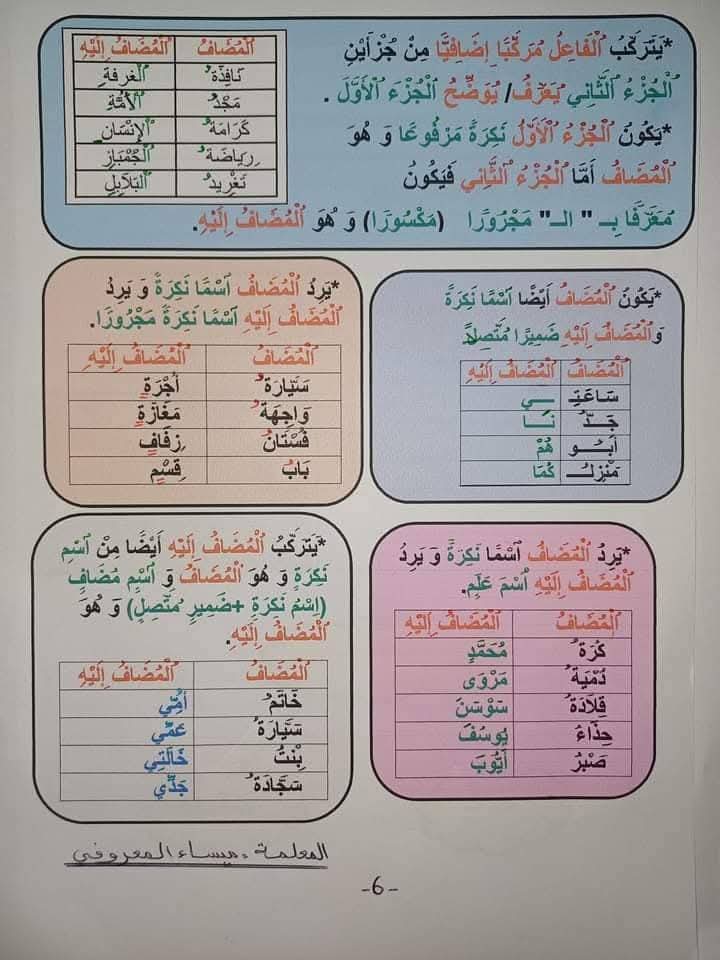 *يَتَرَكَّبُ ٱلْفَاعِلُ مُرَكَّبًا إِضَافِيًّا مِنْ جُزْأَيْنِ
ٱلْجُزْءُ ٱلْثَّانِي يُعَرِّفُ/ يُوَضِّحُ ٱلْجُزْءَ ٱلْأَوَّلَ .
*يَكُونُ ٱلْجُزْءُ ٱلْأَوَّلُ نَكِرَةً مَرْفُوعًا وَ هُوَ
ٱلْمُضَافُ أَمَّا ٱلْجُزْءُ ٱلْثَّانِي فَيَكُونُ
مُعَرَّفًا بِـ " الـ" مَجْرُورًا (مَكْسُورًا) وَ هُوَ ٱلْمُضَافُ إِلَيْهِ.
ٱلْمُضَافُ ٱلْمُضَافُ إِلَيْهِ
نَافِذَةُ ٱلْغُرفَةِ
مَجْدُ ٱلْأُمَّةِ
كَرَامَةُ ٱلْإِنْسَانِ
رِيَاضَةُ ٱلْجُمْبَازِ
تَغْرِيدُ ٱلْبَلَابِلِ
*يَكُونُ ٱلْمُضَافُ أَيْضًا ٱسْمًا نَكِرَةً
وَٱلْمُضَافُ إِلَيْهِ ضَمِيرًا مُتَّصِلاً
ٱلْمُضَافُ ٱلْمُضَافُ إِلَيْهِ
سَاعَتِـ ـِـي
جَدُّ نَا
أَبُـو هُمْ
مَنْزِلُـ كُمَا
*يَرِدُ ٱلْمُضَافُ ٱسْمًا نَكِرَةً وَ يَرِدُ
ٱلْمُضَافُ إِلَيْهِ ٱسْمًا نَكِرَةً مَجْرُورًا.
ٱلْمُضَافُ ٱلْمُضَافُ إِلَيْهِ
سَيَّارَةُ أُجْرَةٍ
وَاجِهَةُ مَغَازَةٍ
فُسْتَانُ زِفَافٍ
بَابُ قِسْمٍ
*يَرِدُ ٱلْمُضَافُ ٱسْمًا نَكِرَةً وَ يَرِدُ
ٱلْمُضَافُ إِلَيْهِ ٱسْمَ عَلَمٍ.
ٱلْمُضَافُ ٱلْمُضَافُ إِلَيْهِ
كُرَةُ مُحَمَّدٍ
دُمْيَةُ مَرْوَى
قِلَادَةُ سَوْسَنَ
حِذَاءُ يُوسُفَ
صَبْرُ أَيُّوبَ
*يَتَرَكَّبُ ٱلْمُضَافُ إِلَيْهِ أَيْضًا مِنْ ٱسْمٍ
نَكِرَةٍ وَ هُوَ ٱلْمُضَافُ وَ ٱسْمٍ مُضَافٍ
(اِسْمُ نَكِرَةٍ +ضَمِيرٍ مُتَّصِلٍ) وَ هُوَ
ٱلْمُضَافُ إِلَيْهِ.
ٱلْمُضَافُ ٱلْمُضَافُ إِلَيْهِ
خَاتَمُ أُمِّي
سَيَّارَةُ عَمِّي
بِنْتُ خَالَتِي
سَجَّادَةُ جَدِّي
المعلمة : ميساء المعروفي
-6-